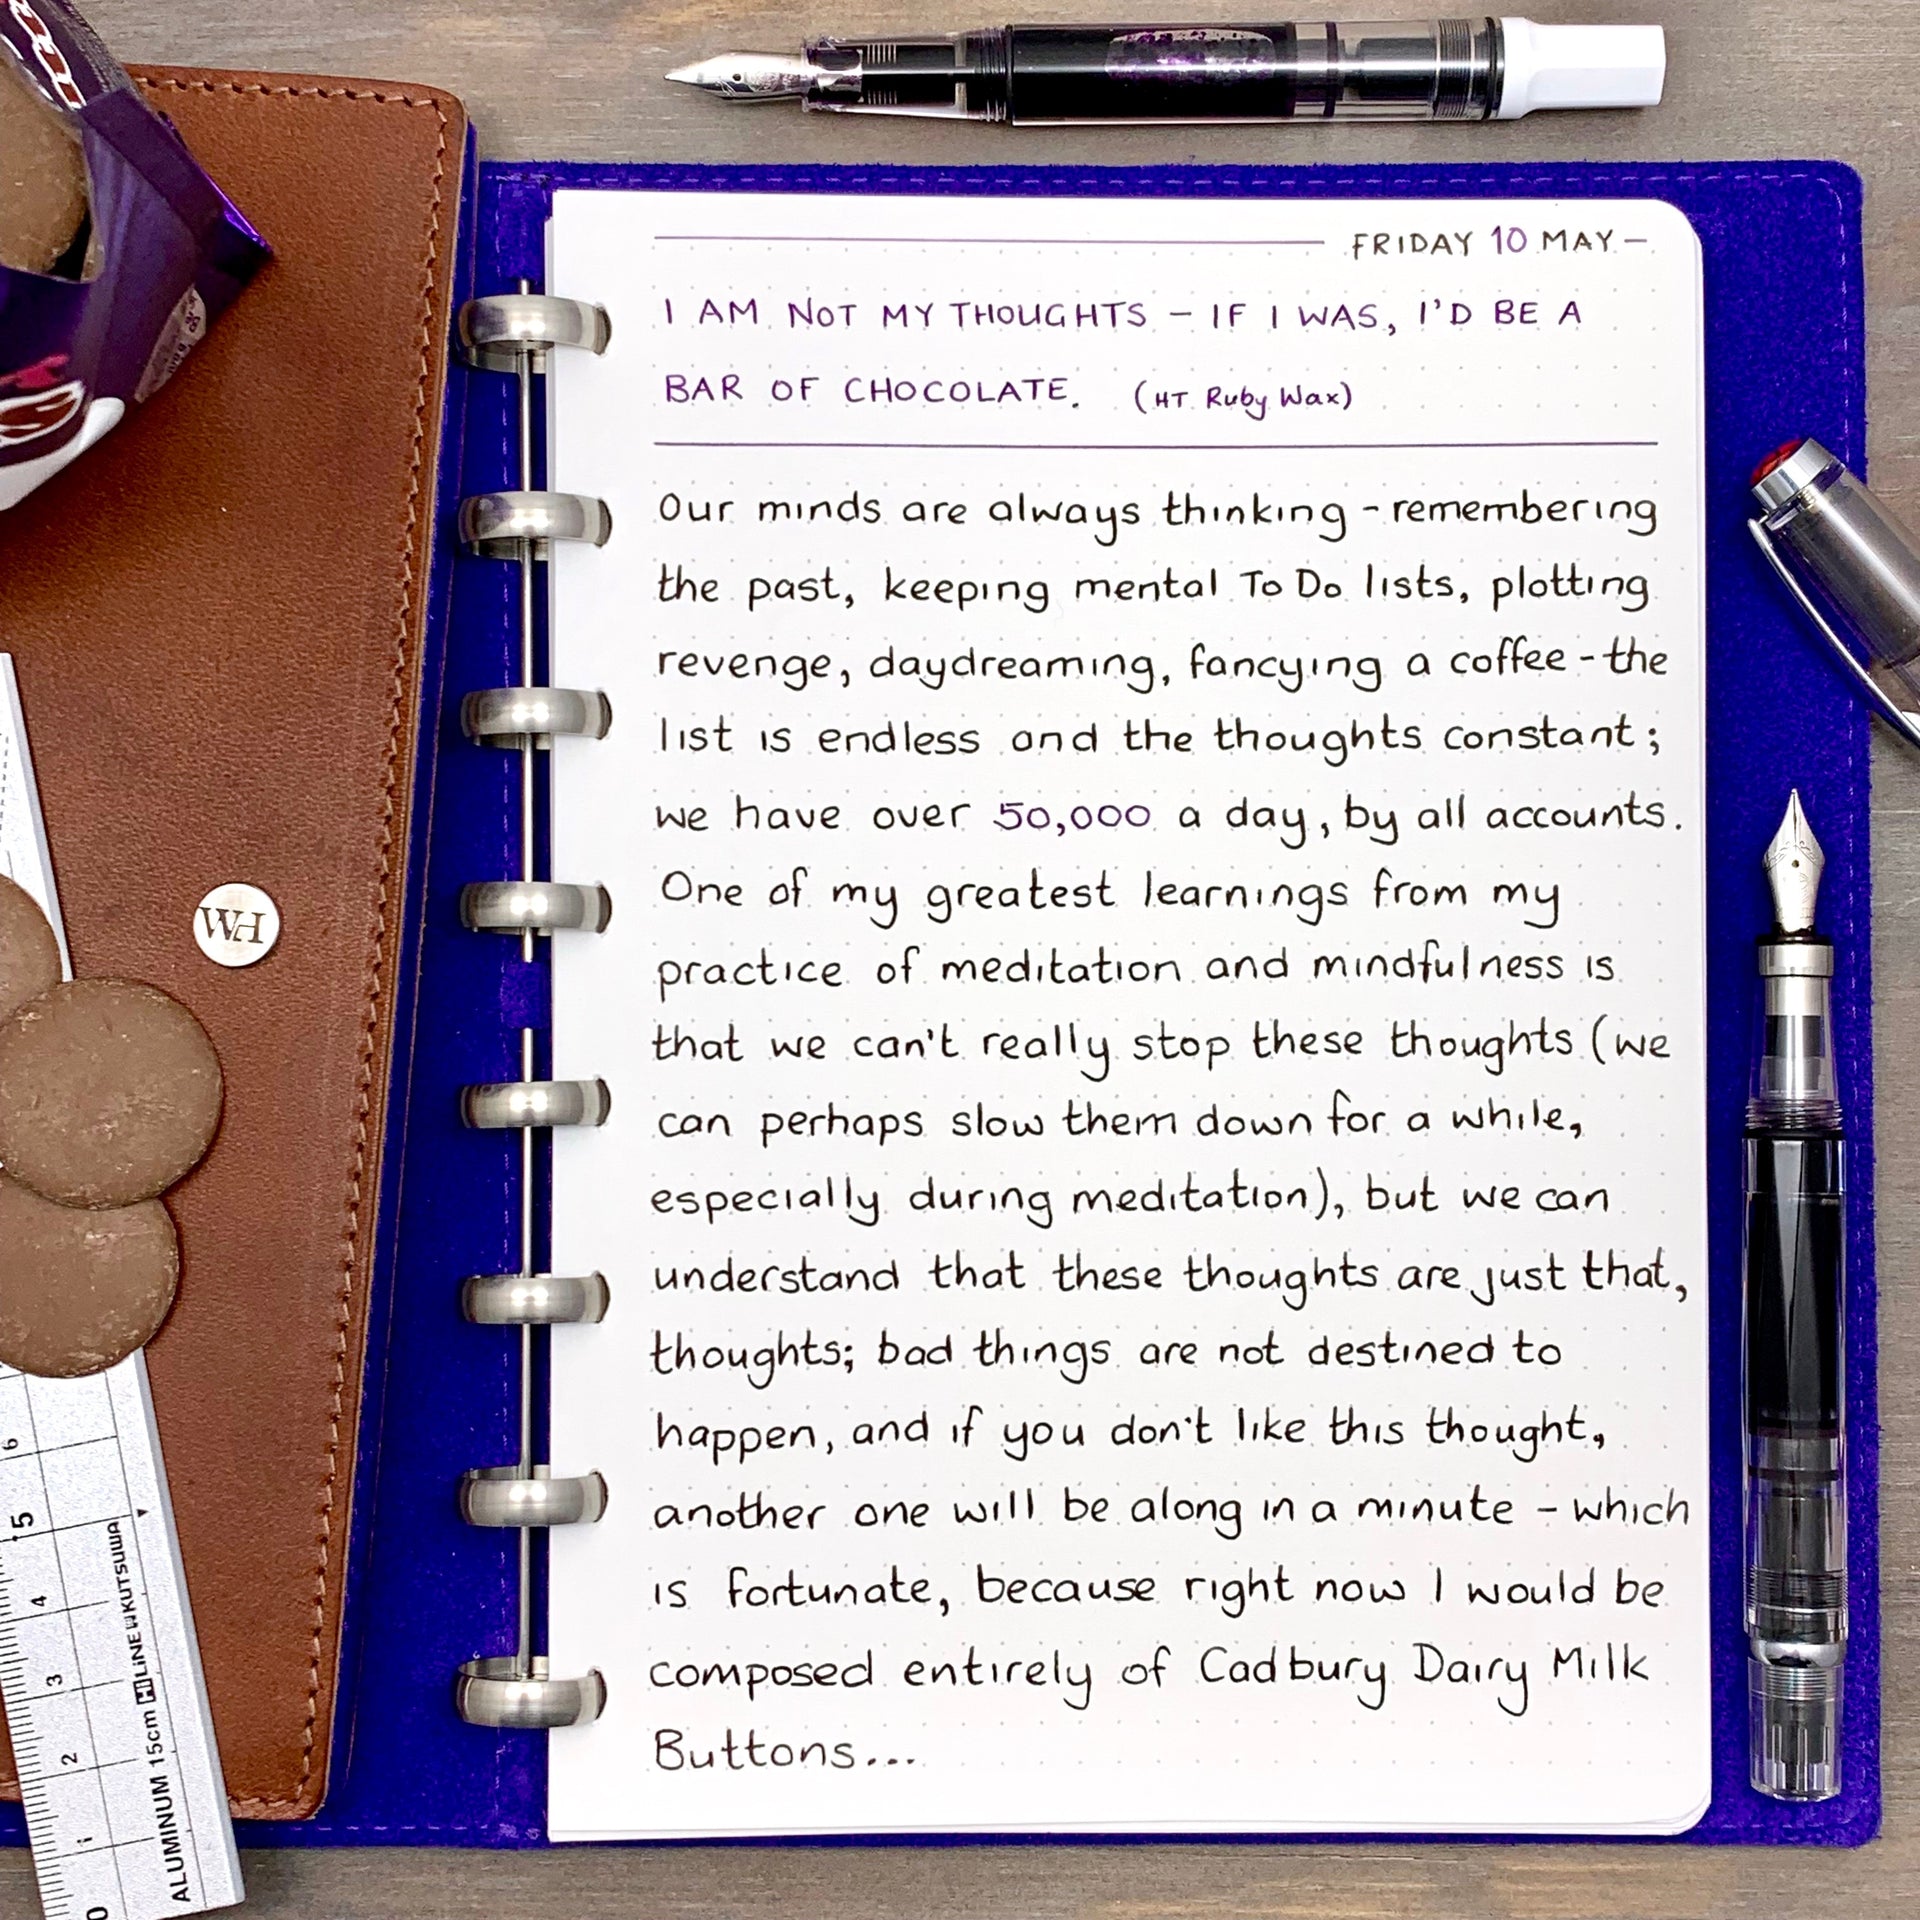 FRIDAY 10 MAY —
I AM NOT MY THOUGHTS – IF I WAS, I'D BE A
BAR OF CHOCOLATE. (HT Ruby Wax)
Our minds are always thinking – remembering
the past, keeping mental To Do lists, plotting
revenge, daydreaming, fancying a coffee – the
list is endless and the thoughts constant;
we have over 50,000 a day, by all accounts.
One of my greatest learnings from my
practice of meditation and mindfulness is
that we can't really stop these thoughts (we
can perhaps slow them down for a while,
especially during meditation), but we can
understand that these thoughts are just that,
thoughts; bad things are not destined to
happen, and if you don't like this thought,
another one will be along in a minute – which
is fortunate, because right now I would be
composed entirely of Cadbury Dairy Milk
Buttons...
WH
6
5
4
3
2
1
0
ALUMINUM 15cm HiLiNE KUTSUWA